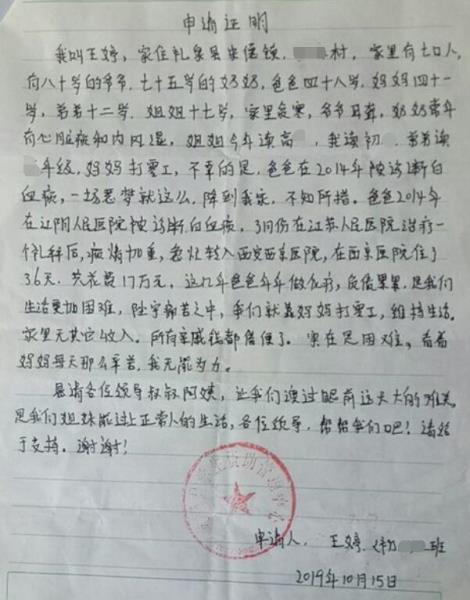 申请证明
我叫王婷，家住礼泉县史德镇，村，家里有七口人，
有八十岁的爷爷，七十五岁的奶奶，爸爸四十八岁，妈妈四十一
岁，弟弟十二岁，姐姐十七岁，家里贫寒，爷爷耳聋，奶奶常年
有心脏病和内风湿，姐姐今年读高，我读初，弟弟读
年级，妈妈打零工，不幸的是，爸爸在2014年被诊断白
血病，一场恶梦就这么，降到我家，不知所措。爸爸2014年
在江阴人民医院被诊断白血病，3月份在江苏人民医院治疗一
个礼拜后，病情加重，急忙转入西安西京医院，在西京医院住了
36天，共花费17万元，这几年爸爸年年做化疗，是我们
生活更加困难，陷害痛苦之中，我们就靠妈妈打零工，维持生活。
家里无其它收入。所有亲戚钱都借便了。实在是困难，看着
妈妈每天那么辛苦，我无能为力。
恳请各位领导叔叔阿姨，让我们渡过眼前这天大的难关
是我们姐妹能过上正常人的生活，各位领导，帮帮我们吧！请给
于支持。谢谢！
申请人：王婷（初班
2019年10月15日